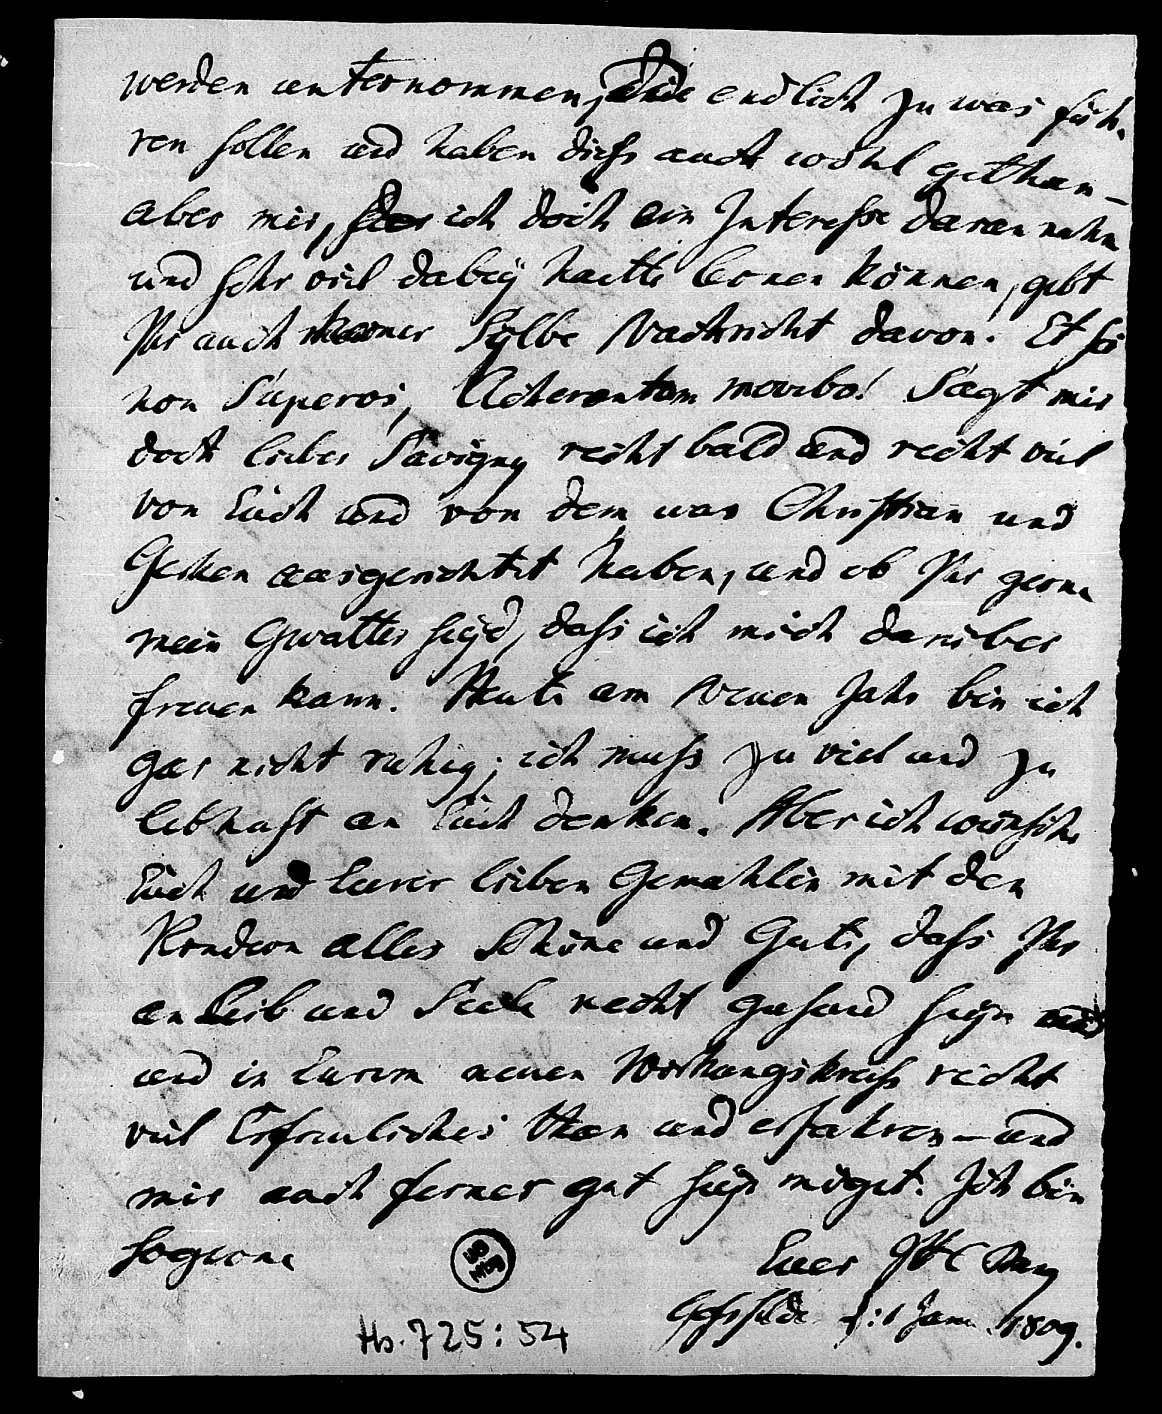 werden unternommen, die endlich zu was füh-
ren sollen und haben diess auch wohl gethan –
aber mir, der ich doch ein Interesse daran nahm
und sehr viel dabey hätte lernen können, gebt
Ihr auch keiner Sylbe Nachricht davon. Et si
non Superos, Acheronta movebo! Sagt mir
doch lieber Savigny recht bald und recht viel
von Euch und von dem was Christian und
ausgerichtet haben, und ob Ihr gerne
mein Gvatter seyd, dass ich mich darüber
freuen kann. Heute am Neuen Jahr bin ich
gar nicht ruhig; ich muss zu viel und zu
lebhaft an Euch denken. Aber ich wünsche
Euch und Eurer lieben Gemahlin mit den
Kindern alles Schöne und Gute, dass Ihr
an Leib und Seele recht gesund seyn
und in Eurem neuen Wirkungskreiss recht
viel Erfreuliches thun und erfahren – und
mir auch ferner gut seyn möget. Ich bin
so gerne
Euer JHC Bang
Gossfelde d: 1 Jan. 1809.
Hs. 725: 54